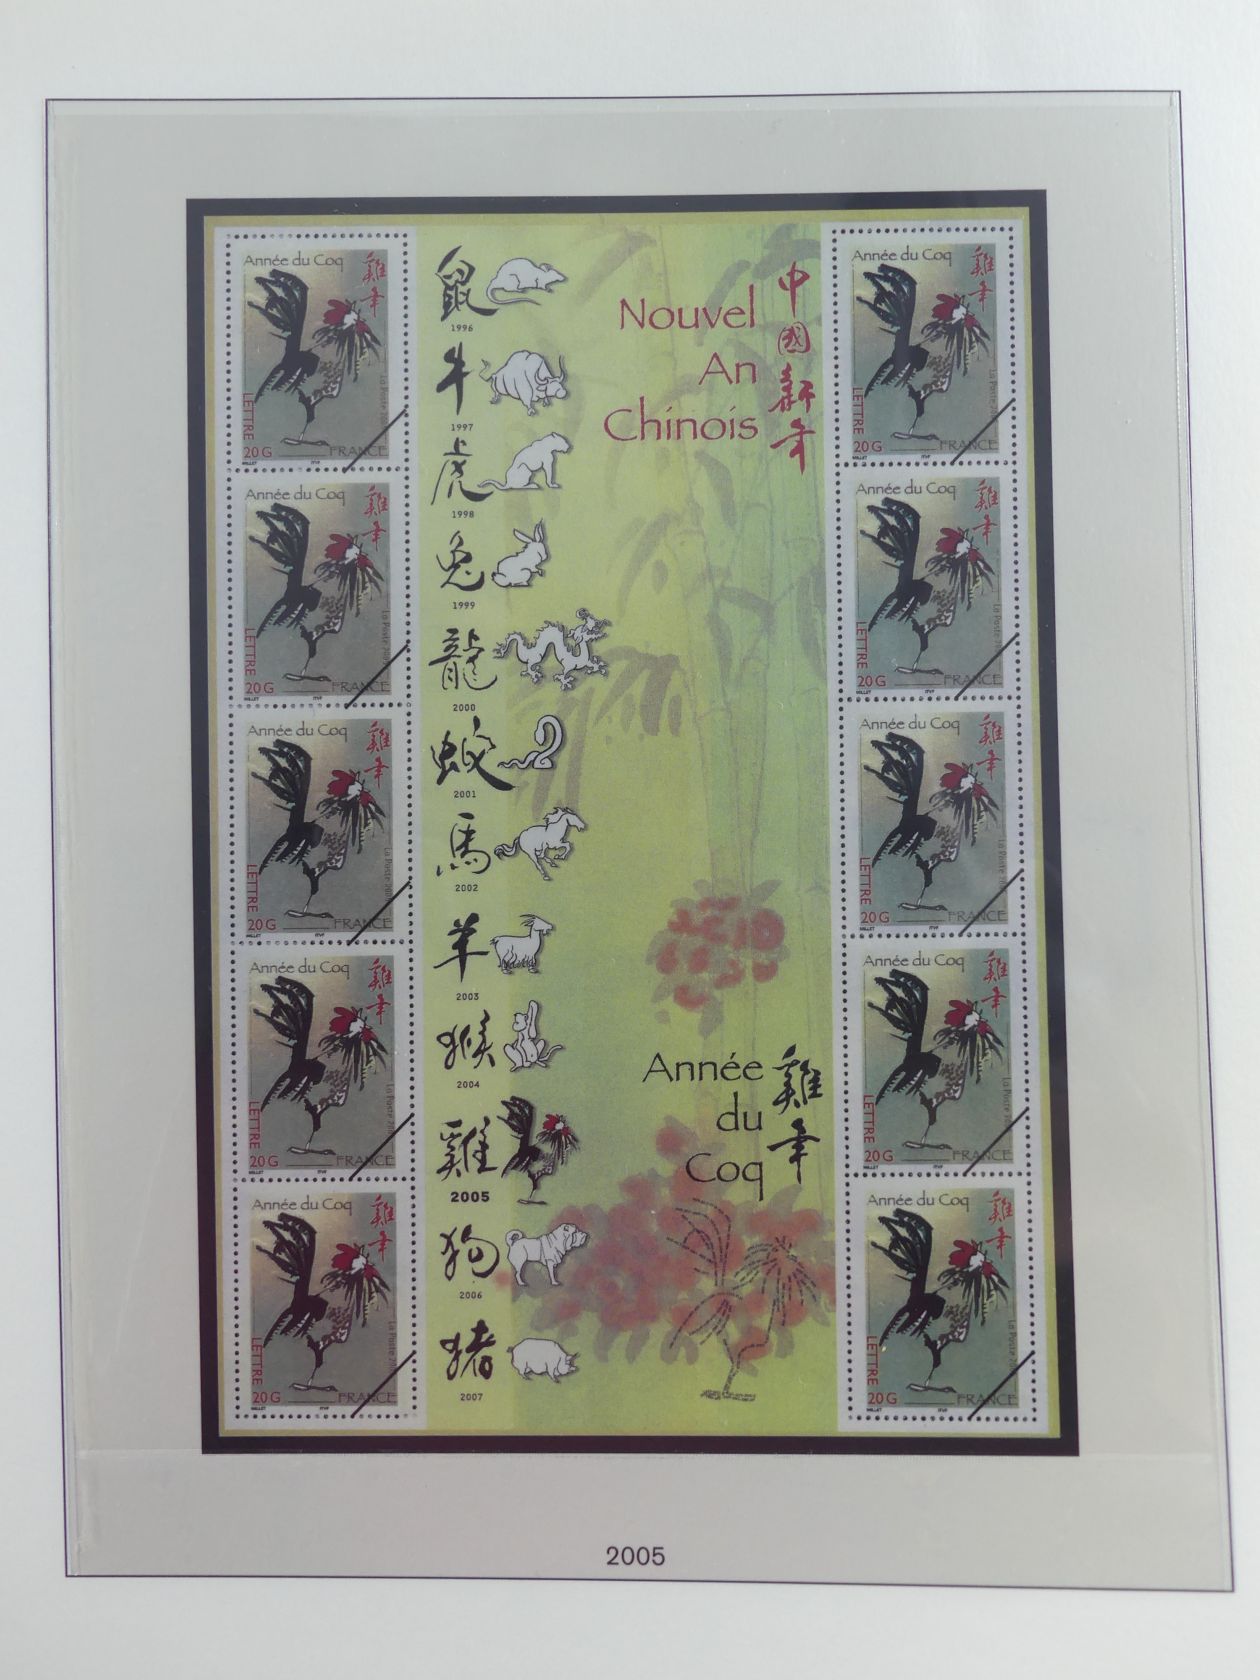 Année du Coq
雞年
La Poste 2005
LETTRE
20 G
FRANCE
MILLET
ITVF
Année du Coq
雞年
La Poste 2005
LETTRE
20 G
FRANCE
MILLET
ITVF
Année du Coq
雞年
La Poste 200
LETTRE
20 G
FRANCE
MILLET
ITVF
Année du Coq
雞年
La Poste 200
LETTRE
20 G
FRANCE
MILLET
ITVF
Année du Coq
雞年
La Poste 200
LETTRE
20 G
FRANCE
MILLET
ITVF
鼠
1996
牛
1997
虎
1998
兔
1999
龍
2000
蛇
2001
馬
2002
羊
2003
猴
2004
雞
2005
狗
2006
猪
2007
Nouvel
An
Chinois
中國新年
Année
du
Coq
雞年
Année du Coq
雞年
La Poste 200
LETTRE
20 G
FRANCE
MILLET
ITVF
Année du Coq
雞年
La Poste 200
LETTRE
20 G
FRANCE
MILLET
ITVF
Année du Coq
雞年
La Poste 200
LETTRE
20 G
FRANCE
MILLET
ITVF
Année du Coq
雞年
La Poste 200
LETTRE
20 G
FRANCE
MILLET
ITVF
Année du Coq
雞年
La Poste 200
LETTRE
20 G
FRANCE
MILLET
ITVF
2005